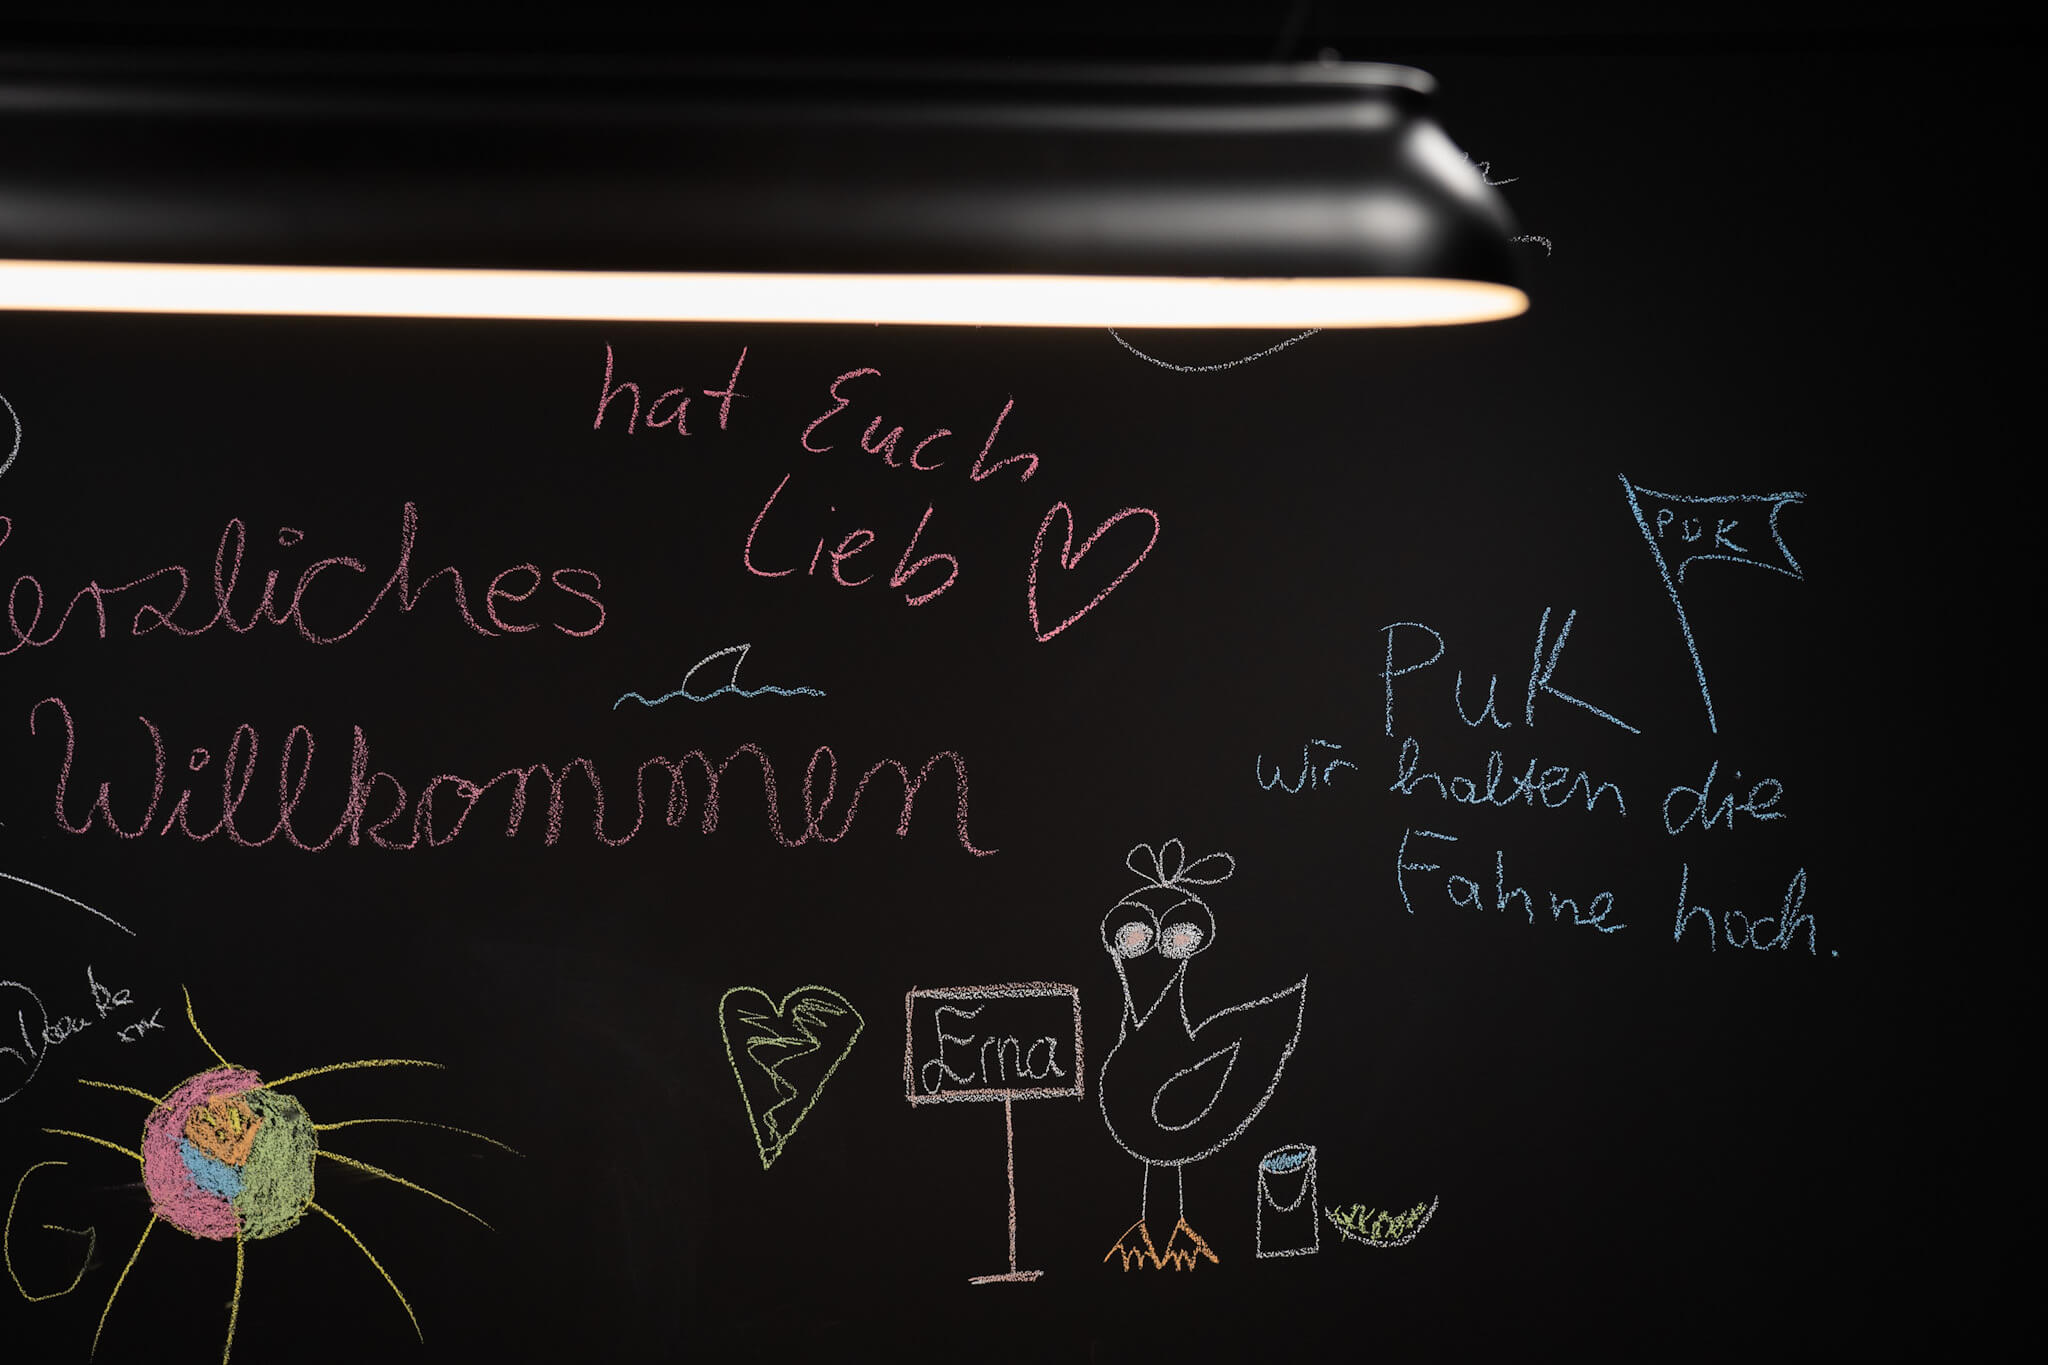 hat Euch
Lieb
Herzliches
Willkommen
PUK
PuK
wir halten die
Fahne hoch.
Danke
Erna